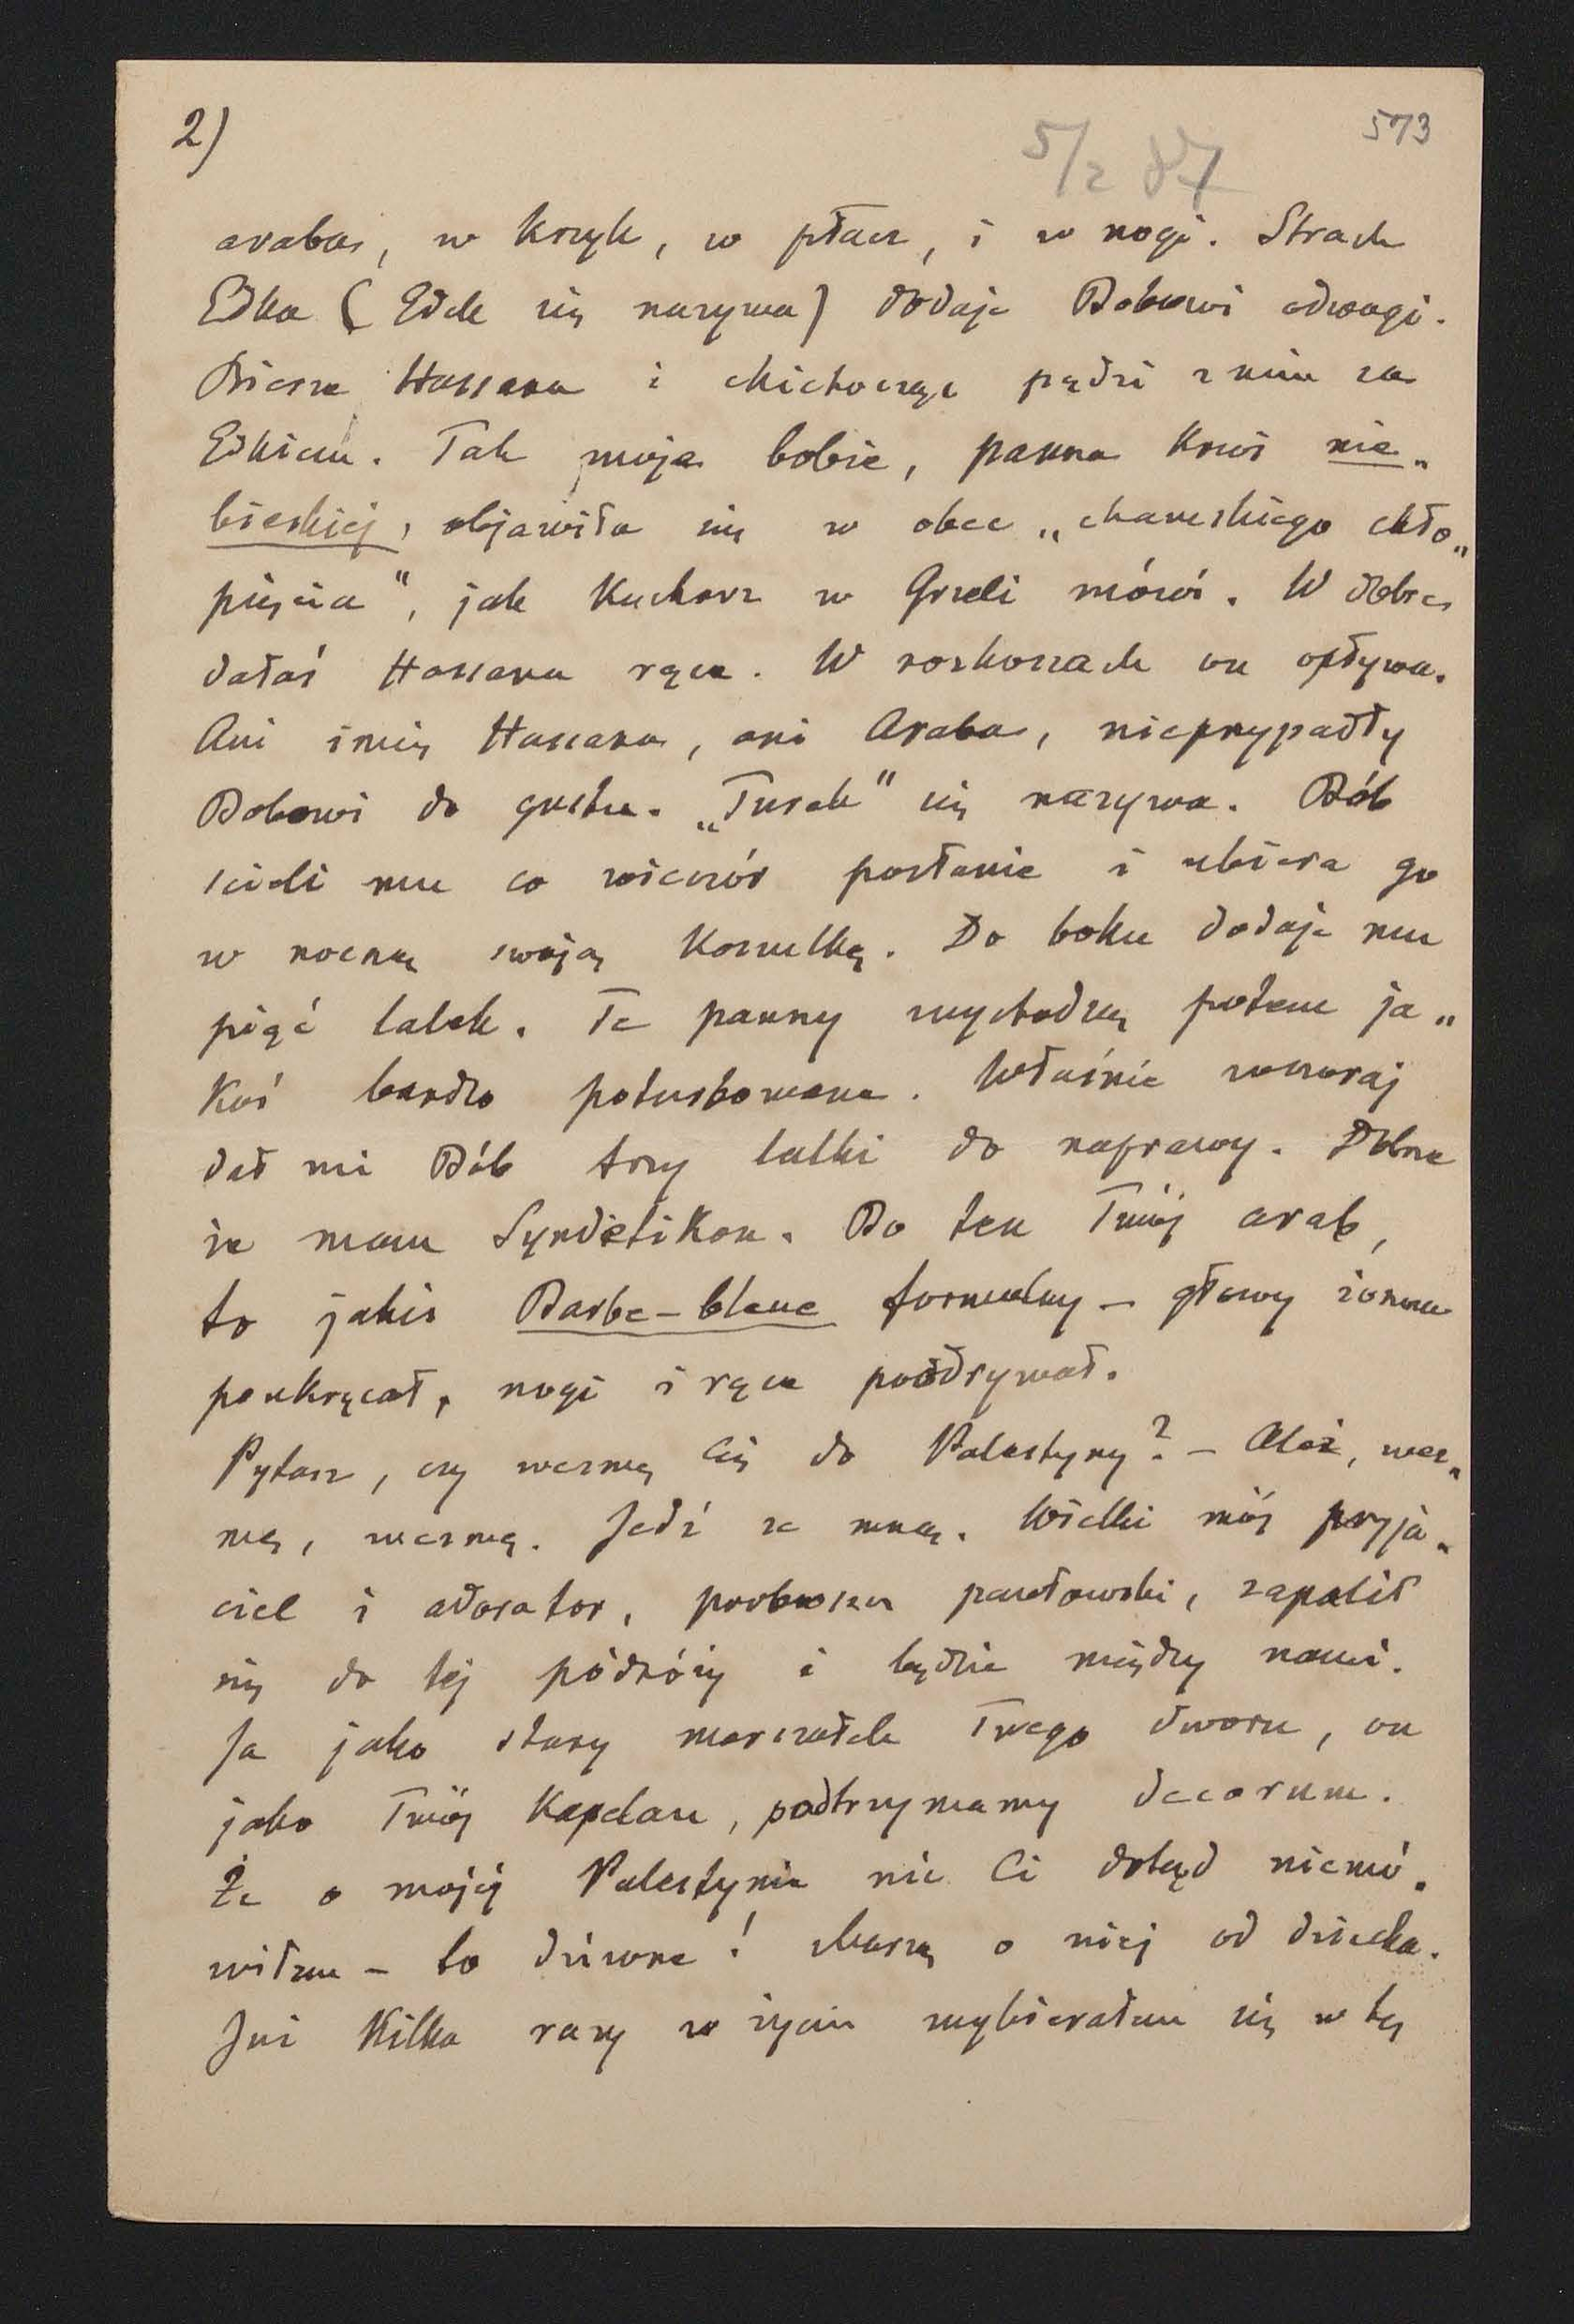 2)
573
5/2 87
araba, w krzyk, w płacz, i w nogi. Strach
Edka (Edek się nazywa) dodaje Bobowi odwagi.
Bierze Hassana i chichocząc pędzi z nim za
Edkiem. Tak moja bobie, panna krwi nie„
bieskiej, objawiła się w obec „chamskiego chło„
pięcia", jak Kucharz w Gzeli mówi. W dobre
dałaś Hassana ręce. W roskoszach on opływa.
Ani imię Hassana, ani Araba, nieprzypadły
Bobowi do gustu. „Turek" się nazywa. Bób
ścieli mu co wieczór posłanie i ubiera go
w nocną swoją Koszulkę. Do boku dodaje mu
pięć lalek. Te panny wychodzą potem ja„
Koś bardzo poturbowane. Właśnie wczoraj
dał mi Bób trzy lalki do naprawy. Dobrze
że mam Syndetikon. Bo ten Twój arab,
to jakis Barbe-bleue formalny – głowy żonom
poukręcał, nogi i ręce poodrywał.
Pytasz, czy wezmę Cię do Palestyny? – Ależ, wez„
mę, wezmę. Jedź ze mną. Wielki mój przyja„
ciel i adorator, proboszcz pawłowski, zapalił
się do tej pódróży i będzie między nami.
Ja jako stary marszałek Twego dworu, on
jako Twój Kapelan, podtrzymamy decorum.
Że o mojéj Palestynie nic Ci dotąd niemó„
wiłem – to dziwne! Marzę o niéj od dziecka.
Już Kilka razy w życiu wybierałem się w tę